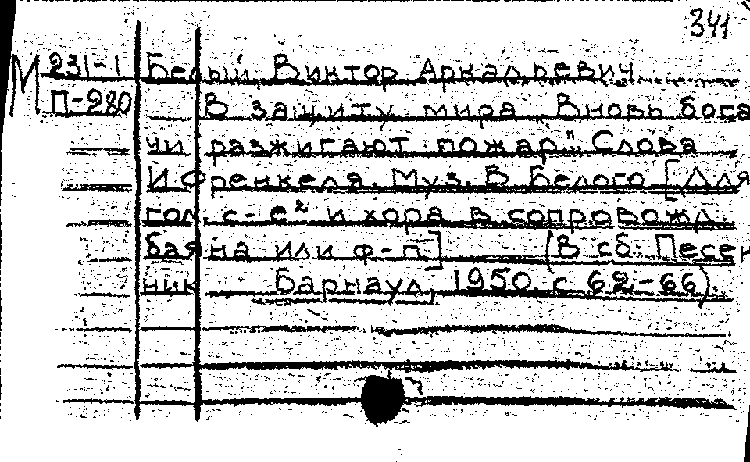 341
М 231-1 Белый, Виктор Аркадьевич
П-280 В защиту мира "Вновь бога
чи разжигают пожар". Слова
И Френкеля. Муз. В Белого [Для
гол. с-е² и хора в сопровожд.
баяна или ф-п.] (В сб. Песен
ник Барнаул, 1950 с 62-66).